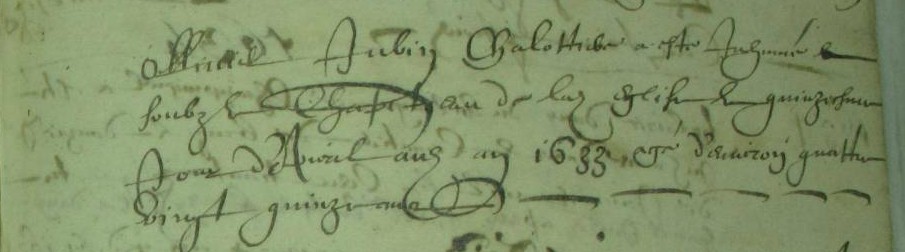 Aubin Galottube a esté Inhumé
soubz le Chapiteau de lad eglise le quinzesme
Jour d'Avril aud an 1633 agé d'environ quattre
vingt quinze ans